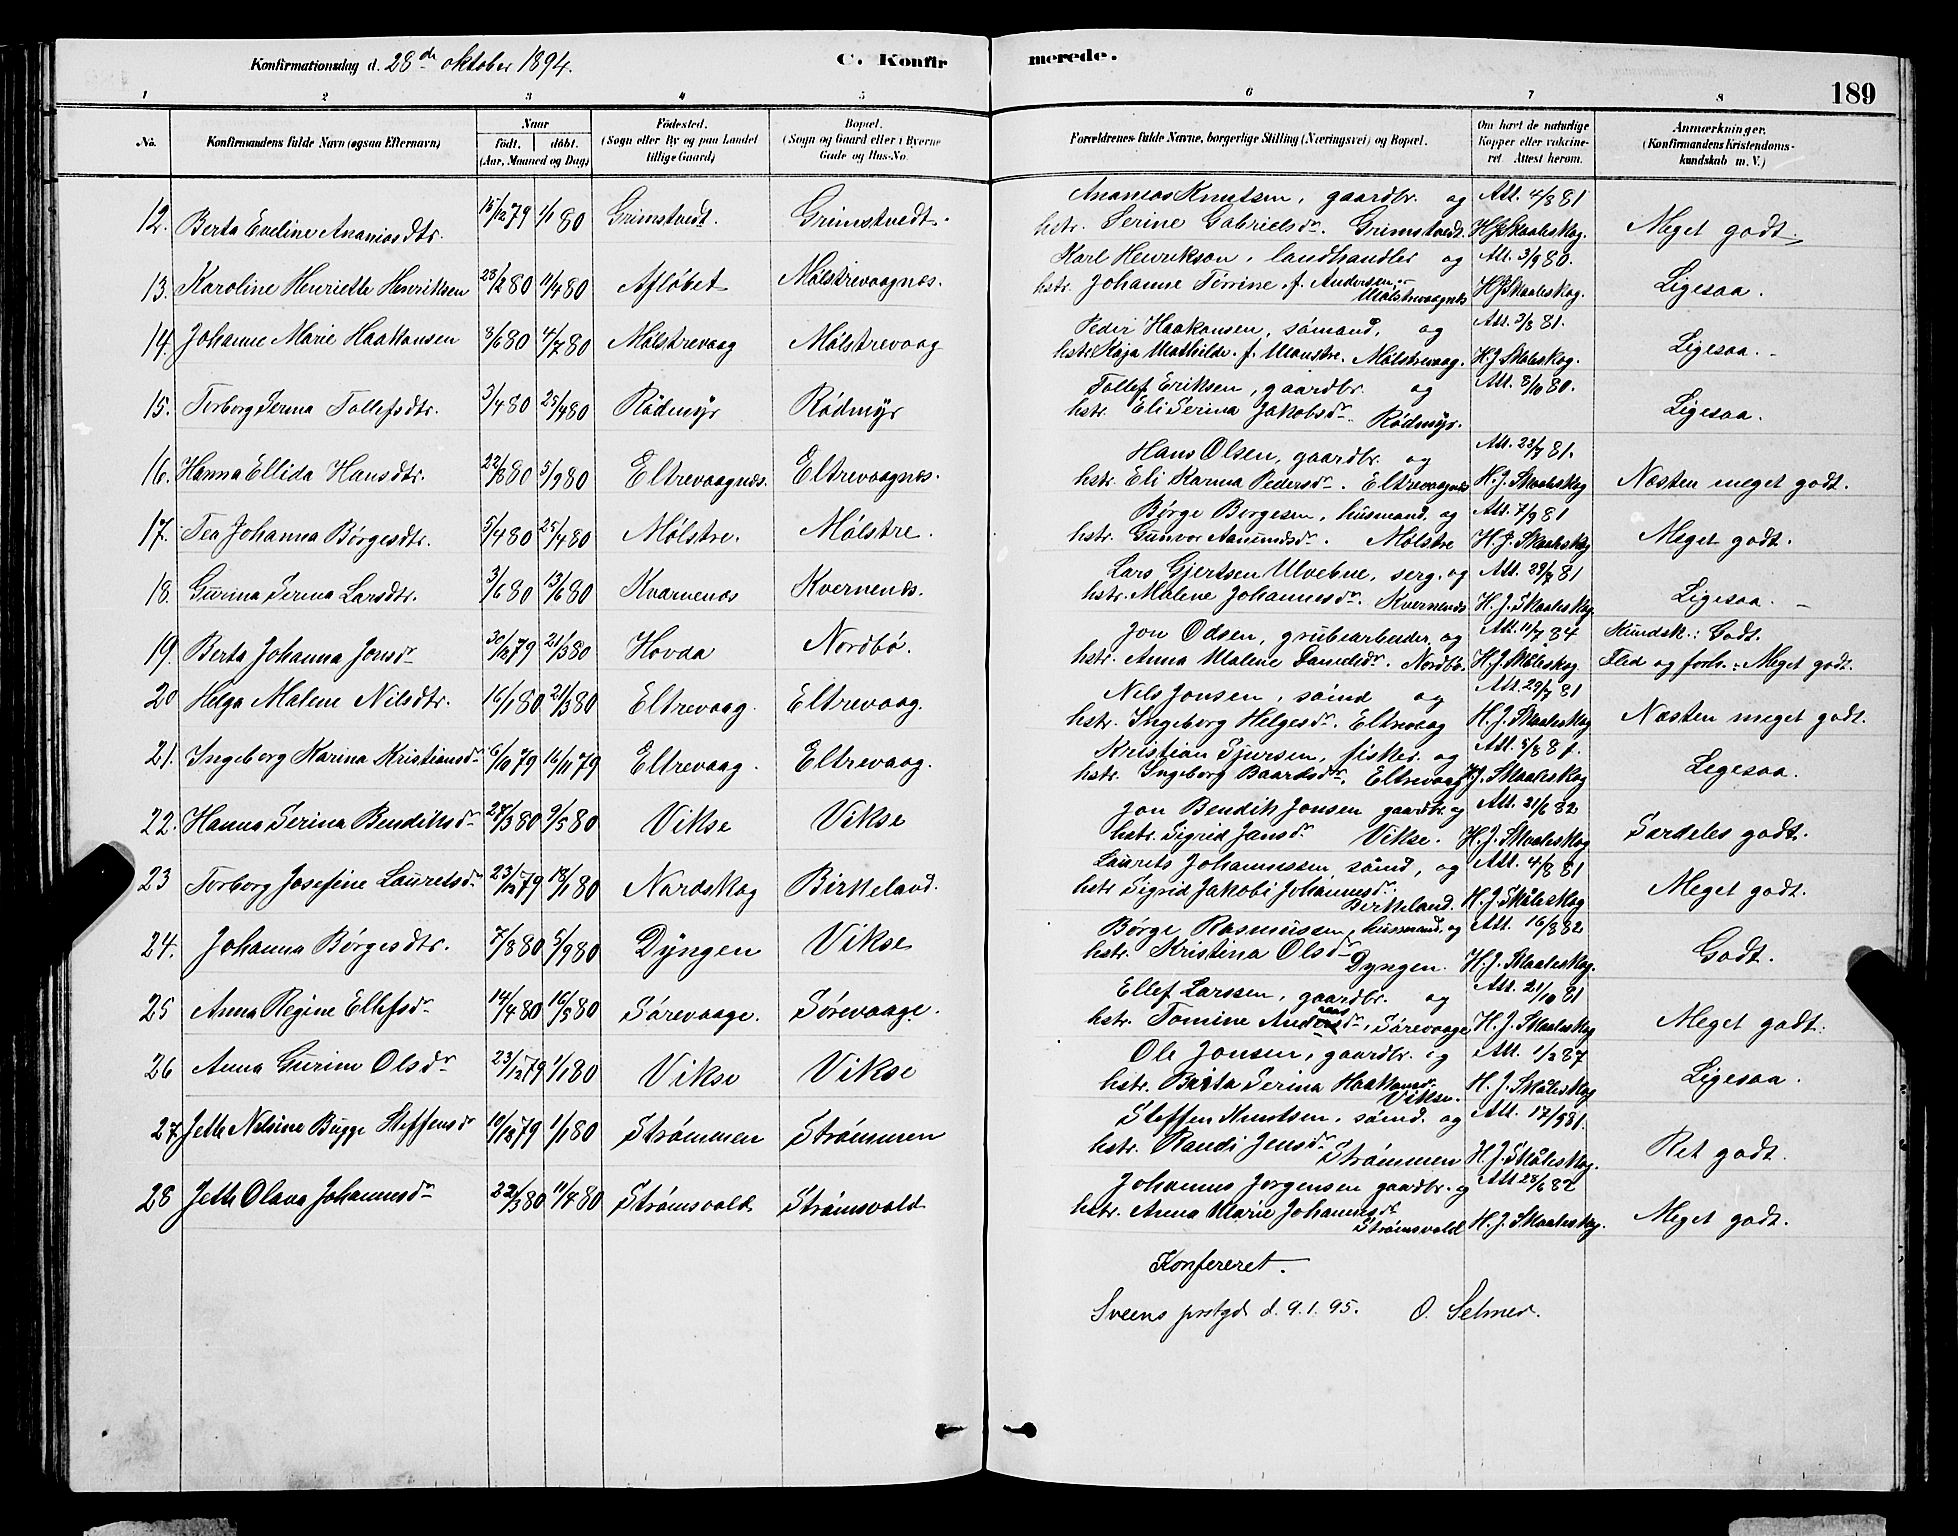 Konfirmationsdag d. 28de oktober 1894.
C. Konfirmerede.
189
1 2 3 4 5 6 7 8
No. Konfirmandens fulde Navn (ogsaa Efternavn) Naar født, døbt. (Aar, Maaned og Dag) Fødested. (Sogn eller By og paa Landet tillige Gaard) Bopæl. (Sogn og Gaard eller i Byerne Gade og Hus-No. Forældrenes fulde Navne, borgerlige Stilling (Næringsvei) og Bopæl. Om havt de naturlige Kopper eller vakcineret. Attest herom. Anmærkninger. (Konfirmandens Kristendomskundskab m. V.)
12. Berta Eveline Ananiasdtr. 15/12 79 1/1 80 Grimstvedt. Grimstvedt. Ananias Knutsen, gaardbr. og Att. 4/8 81
hstr. Serine Gabrielsdr. Grimstvedt. H J Skaaleskog. Meget godt.
13. Karoline Henriette Henriksen 28/2 80 11/4 80 Afløbet Mølstrevaagnæs. Karl Henrikson, landhandler og Att. 3/9 80.
hstr. Johanne Tørrine f. Andersen, Mølstrevaagnæs H J Skaaleskog. Ligesaa.
14. Johanne Marie Haakonsen 8/6 80 4/7 80 Mølstrevaag Mølstrevaag Peder Haakonsen, sømand, og Att. 3/8 81.
hstr. Kaja Mathilde f. Monstre. Mølstrevaag. H. J Skaaleskog. Ligesaa.
15. Torborg Serina Tollefsdtr. 3/4 80 25/4 80 Rødmyr Rødmyr Tollef Eriksen, gaardbr. og Att. 8/10 80.
hstr. Eli Serina Jakobsdr. Rødmyr. Ligesaa.
16. Hanna Ellida Hansdtr. 22/8 80 5/9 80 Eltrevaagnæs. Eltrevaagnæs. Hans Olsen, gaardbr. og Att. 23/9 81.
hstr. Eli Karina Pedersdr. Eltrevaagnæs H. J. Skaaleskog Næsten meget godt.
17. Tea Johanna Børgesdtr. 5/4 80 25/4 80 Mølstre. Mølstre. Børge Børgesen, husmand. og Att. 7/9 81
hstr. Gunvor Aamundsdr. Mølstre H. J. Skaaleskog Meget godt.
18. Gurina Serina Larsdtr. 3/6 80 13/6 80 Kvernenæs Kvernenæs. Lars Gjertsen Ulvebne, serg. og Att. 29/8 81
hstr. Malene Johannesdr. Kvernenæs H. J. Skaaleskog. Ligesaa.
19. Berta Johanna Jonsdr 30/12 79 21/3 80 Hovda Nordbø. Jon Odsen, grubearbeider og Att. 11/7 84 Kundsk.: Godt.
hstr. Anna Malene Danielsdr. Nordbø. H. J. Skåleskog. Flid og forh.: Meget godt.
20 Helga Malene Nilsdtr. 16/1 80 21/3 80 Eltrevaag. Eltrevaag. Nils Jonsen, sømd og Att. 29/7 81
hstr. Ingeborg Helgesdr. Eltrevaag H. J. Skaaleskog Næsten meget godt.
21. Ingeborg Karina Kristiansdr 6/10 79 16/11 79 Eltrevaag. Eltrevaag. Kristian Sjursen, fisker. og Att. 5/8 81.
hstr. Ingeborg Baardsdr. Eltrevaag H. J. Skaaleskog Ligesaa.
22. Hanna Serina Bendiksdr 28/3 80 9/5 80 Vikse Vikse Jon Bendik Jonsen gaardbr. og Att. 21/6 82
hstr. Sigrid Jansdr Vikse. H. J. Skaaleskog Særdeles godt.
23 Torborg Josefine Lauretsdr 23/12 79 18/1 80 Nordskog Birkeland. Laurets Johannessen, sømd, og Att. 4/8 81
hstr Sigrid Jakobi Johannesdr. Birkeland. H. J. Skåleskog Meget godt.
24. Johanna Børgesdtr. 7/8 80 5/9 80 Dyngen Vikse Børge Rasmussen, husmand. og Att. 16/8 82
hstr. Kristina Olsdr Dyngen. H. J. Skaaleskog. Godt.
25 Anna Regine Ellefsdr 14/4 80 16/5 80 Sørevaage. Sørevaage. Ellef Larssen, gaardbr. og Att. 21/10 81
hstr. Tomine Andersdr, Sørevaage H. J. Skaaleskog Meget godt.
26 Anna Gurine Olsdr 23/12 79 1/1 80 Vikse Vikse Ole Jonsen, gaardbr. og Att. 1/2 87
hstr. Brita Serina Haakonsdr. Vikse. H. J. Skåleskog Ligesaa.
27. Jette Nilsine Bugge Steffensdr 10/12 79 1/1 80 Strømmen Strømmen Steffen Knutsen, sømd. og Att. 17/9 81.
hstr. Randi Jensdr Strømmen H. J. Skåleskog. Ret godt.
28 Jette Olava Johannesdr 22/3 80 11/4 80 Strømsvold Strømsvold Johannes Jørgensen gaardbr. og Att 28/6 82
hstr. Anna Marie Johannesdr Strømsvold H. J. Skaaleskog. Meget godt.
Konfereret.
Sveens prstgd d. 9.1.95. O. Selmer.